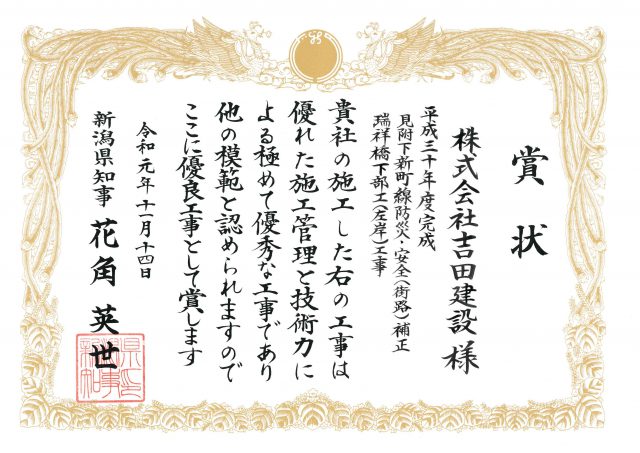 賞状
株式会社吉田建設 様
平成三十年度完成
見附下新町線防災・安全(街路)補正
瑞祥橋下部工(左岸)工事
貴社の施工した右の工事は
優れた施工管理と技術力に
よる極めて優秀な工事であり
他の模範と認められますので
ここに優良工事として賞します
令和元年十一月十四日
新潟県知事 花角英世